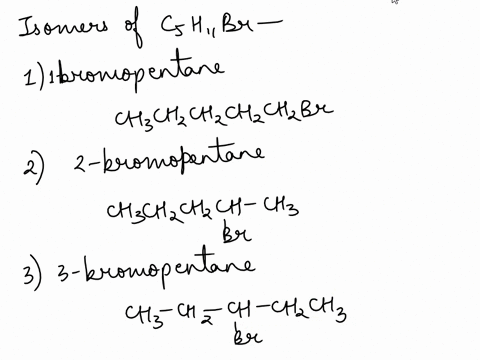 Isomers of C5H11Br—
1) 1bromopentane
CH3CH2CH2CH2CH2Br
2) 2-bromopentane
CH3CH2CH2CH-CH3
Br
3) 3-bromopentane
CH3-CH2-CH-CH2CH3
Br